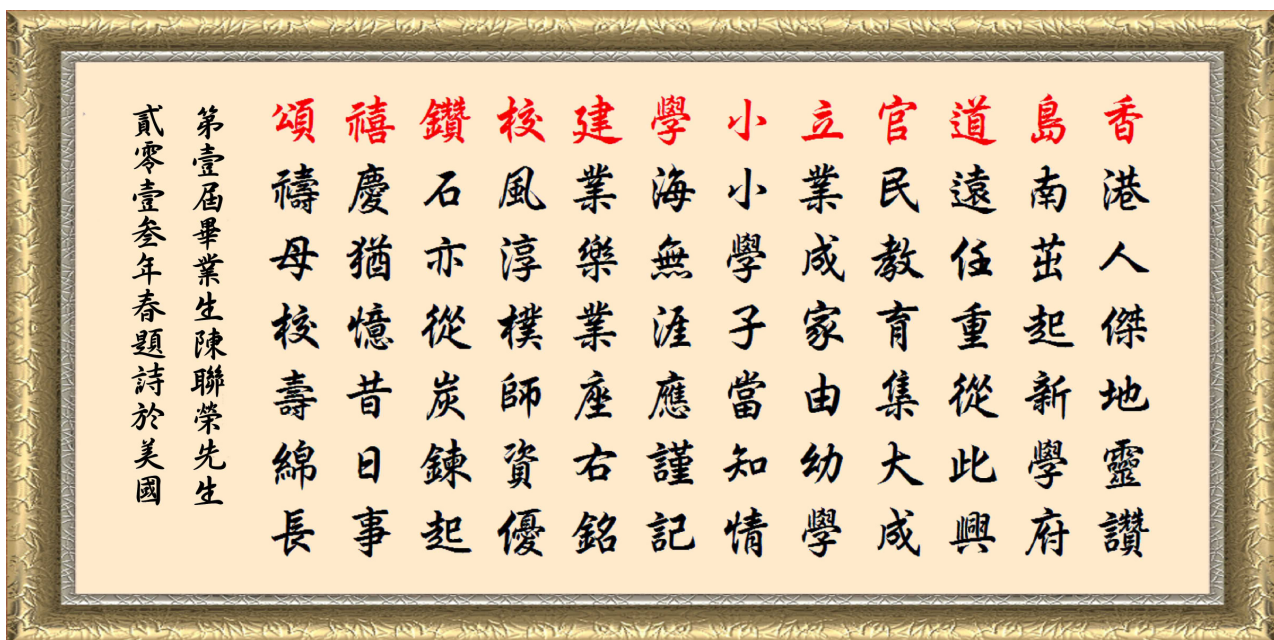 香港人傑地靈讚
島南茁起新學府
道遠任重從此興
官民教育集大成
立業成家由幼學
小小學子當知情
學海無涯應謹記
建業樂業座右銘
校風淳樸師資優
鑽石亦從炭鍊起
禧慶猶憶昔日事
頌禱母校壽綿長
第壹屆畢業生陳聯榮先生
貳零壹叁年春題詩於美國